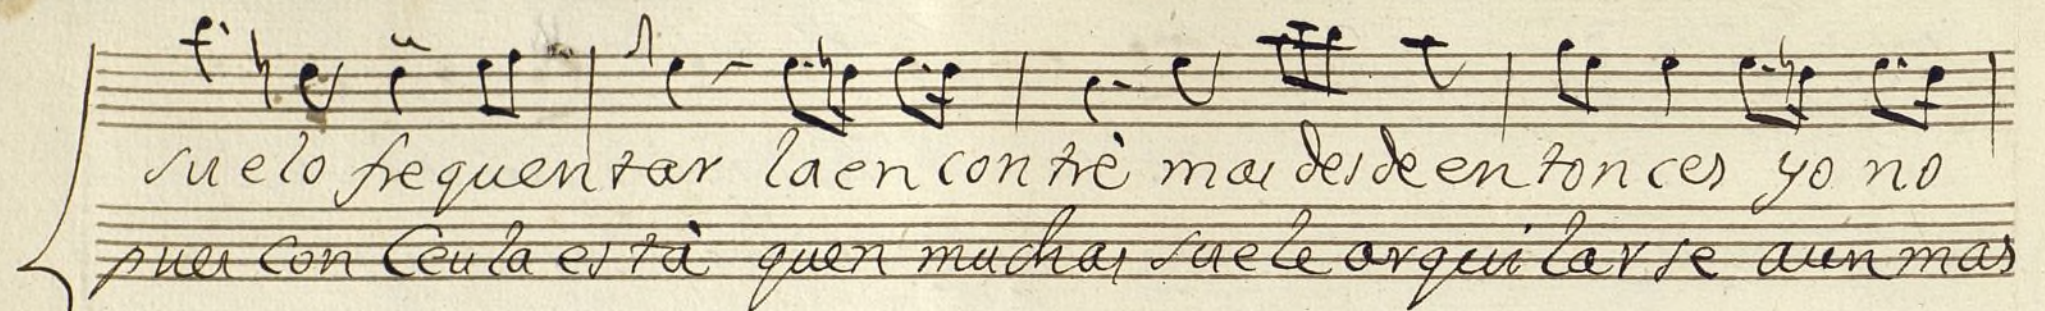 suelo frequentar la encontrè mas desde entonces yo no
pues con Ceula està quen muchas suele arquilarse aun mas